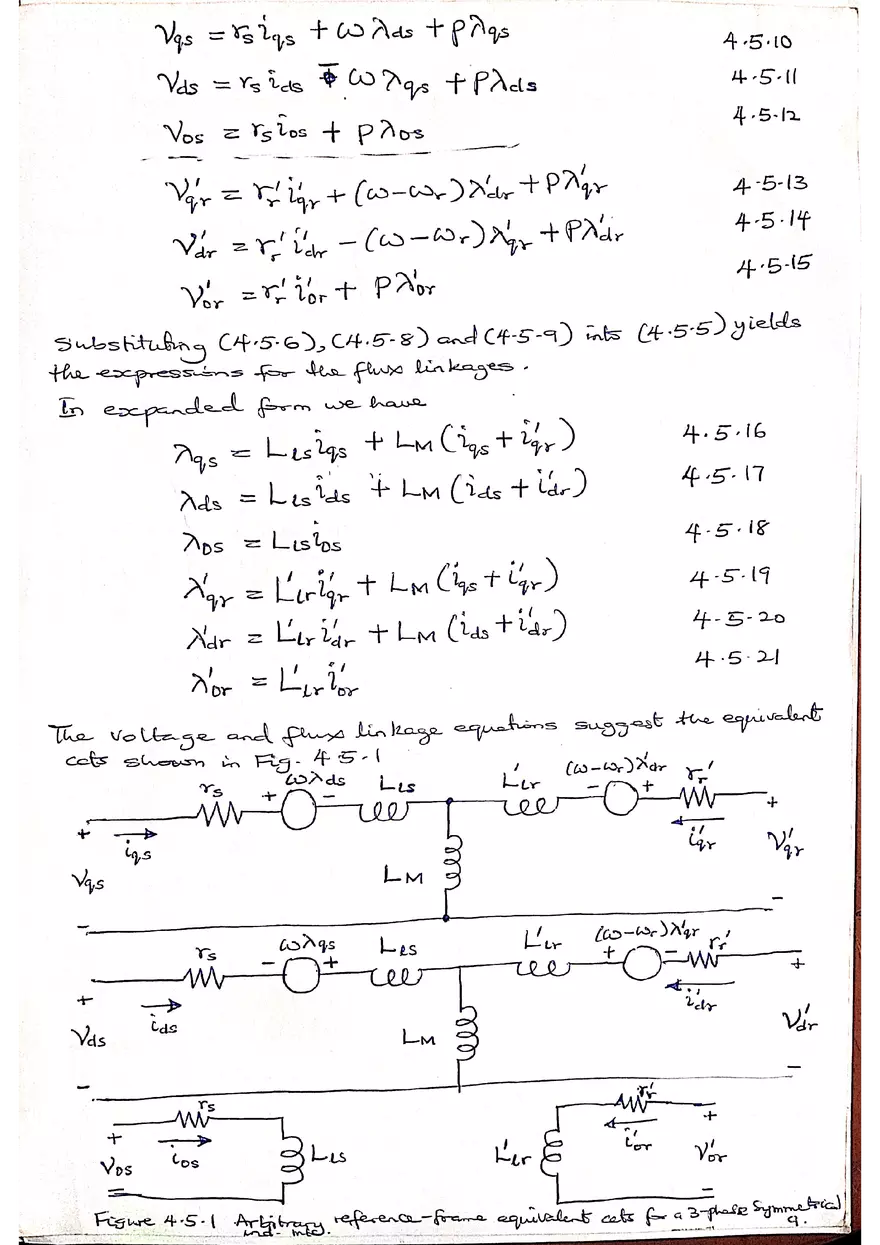 Vqs = rs iqs + ωλds + pλqs 4.5.10
Vds = rs ids - ωλqs + pλds 4.5.11
Vos = rs ios + pλos 4.5-12
V'qr = r'r i'qr + (ω-ωr)λ'dr + pλ'qr 4.5-13
V'dr = r'r i'dr - (ω-ωr)λ'qr + pλ'dr 4.5.14
V'or = r'r i'or + pλ'or 4.5-15
Substituting (4.5.6), (4.5-8) and (4-5-9) into (4.5.5) yields
the expressions for the flux linkages.
In expanded form we have
λqs = Lls iqs + LM (iqs + i'qr) 4.5.16
λds = Lls ids + LM (ids + i'dr) 4.5.17
λos = Lls ios 4.5.18
λ'qr = L'lr i'qr + LM (iqs + i'qr) 4.5.19
λ'dr = L'lr i'dr + LM (ids + i'dr) 4-5-20
λ'or = L'lr i'or 4.5.21
The voltage and flux linkage equations suggest the equivalent
ccts shown in Fig. 4.5-1
rs + ωλds - Lls L'lr - (ω-ωr)λ'dr + r'r
+ iqs i'qr +
Vqs LM V'qr
- -
rs - ωλqs + Lls L'lr + (ω-ωr)λ'qr - r'r
+ ids i'dr +
Vds LM V'dr
- -
rs r'r
+ ios i'or +
Vos Lls L'lr V'or
- -
Figure 4.5.1 Arbitrary reference-frame equivalent ccts for a 3-phase Symmetrical
ind. m/c.
9.